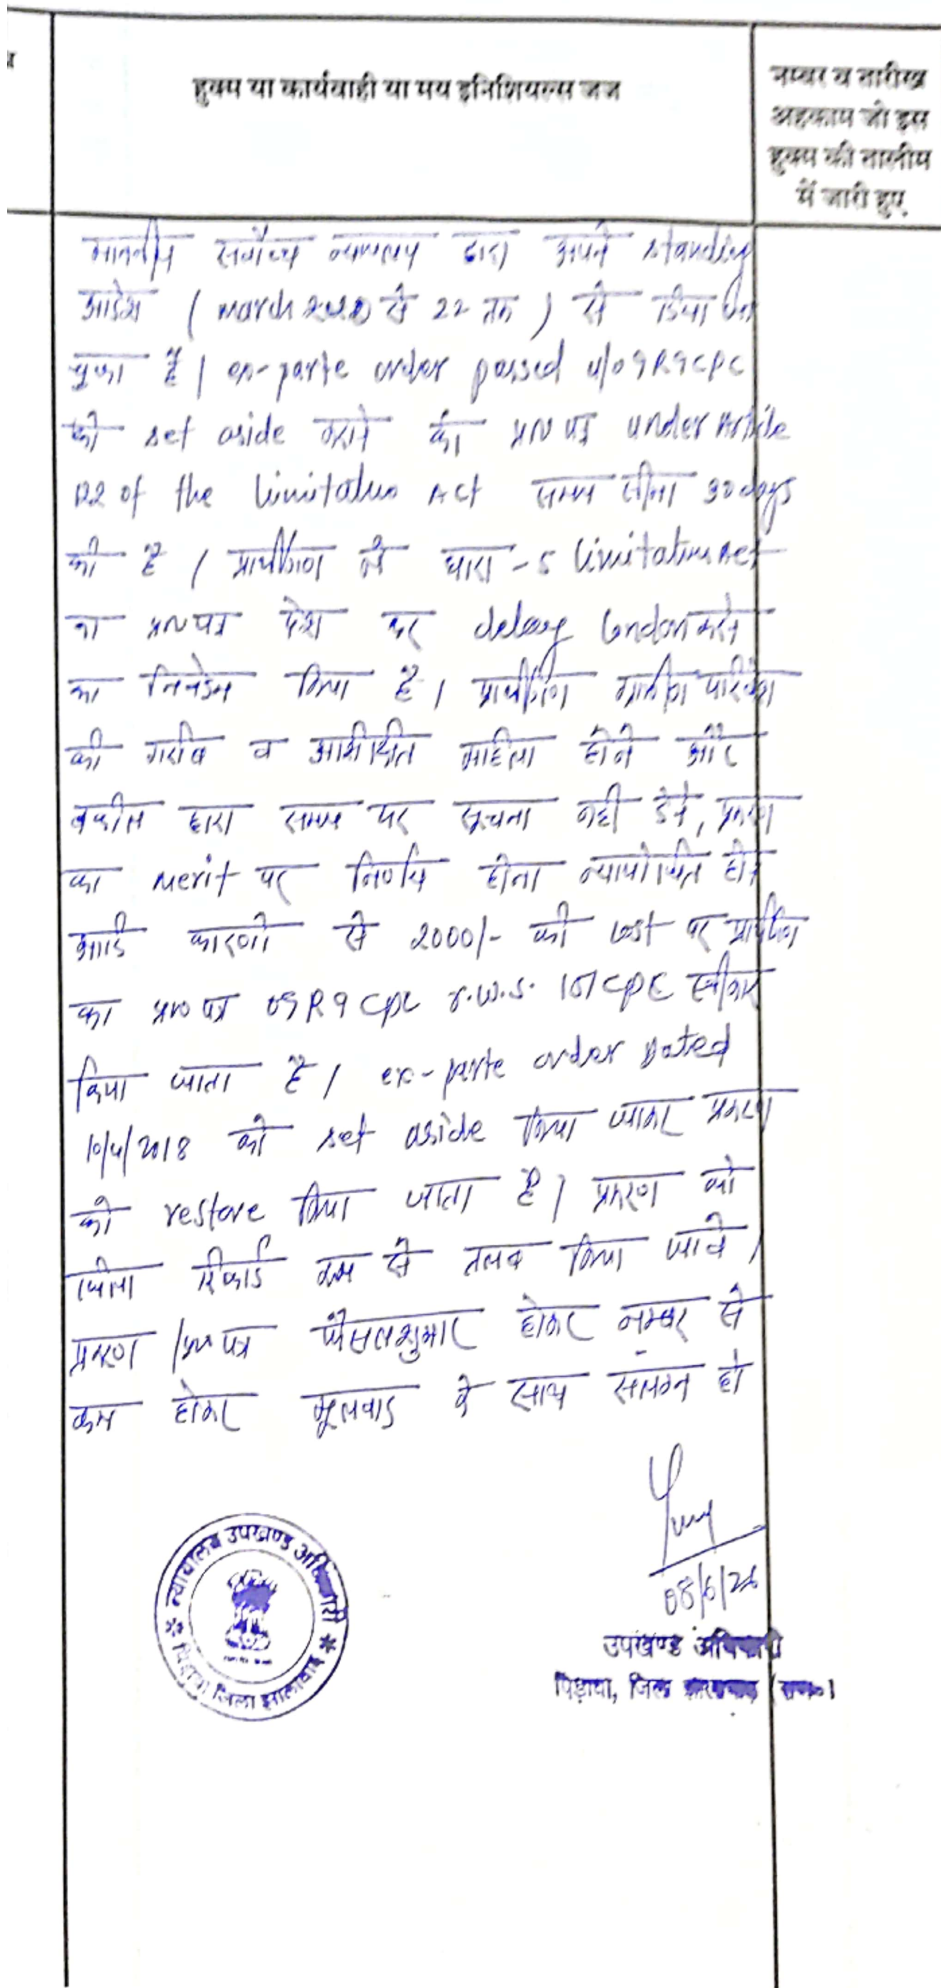 हुक्म या कार्यवाही या मय इनिशियल्स जज
नम्बर व तारीख
अहकाम जो इस
हुक्म की तालीम
में जारी हुए
माननीय सर्वोच्च न्यायालय द्वारा अपने standing
आदेश ( march 2020 से 22 तक ) से किया जा
चुका है | ex-parte order passed u/o9R9CPC
को set aside कराने का प्रा०पत्र under Article
122 of the limitation Act समय सीमा 30 days
की है | प्रार्थीगण ने धारा-5 limitation Act
का प्रा०पत्र पेश कर delay condon करने
का निवेदन किया है | प्रार्थीगण ग्रामीण परिवेश
की गरीब व अशिक्षित महिला होने और
वकील द्वारा समय पर सूचना नही देने, प्रकरण
का merit पर निर्णय होना न्यायोचित होने
आदि कारणो से 2000/- की cost पर प्रार्थीगण
का प्रा०पत्र O9R9 CPC r.w.s. 151 CPC स्वीकार
किया जाता है | ex-parte order Dated
10/4/2018 को set aside किया जाकर प्रकरण
को restore किया जाता है | प्रकरण को
जिला रिकार्ड रूम से तलब किया जावे |
प्रकरण / प्रा०पत्र फैसलशुमार होकर नम्बर से
कम होकर मूलवाद के साथ सलंग्न हो
08/6/26
उपखण्ड अधिकारी
पिड़ावा, जिला झालावाड़ (राज०)
न्यायालय उपखण्ड अधिकारी
पिड़ावा जिला झालावाड़